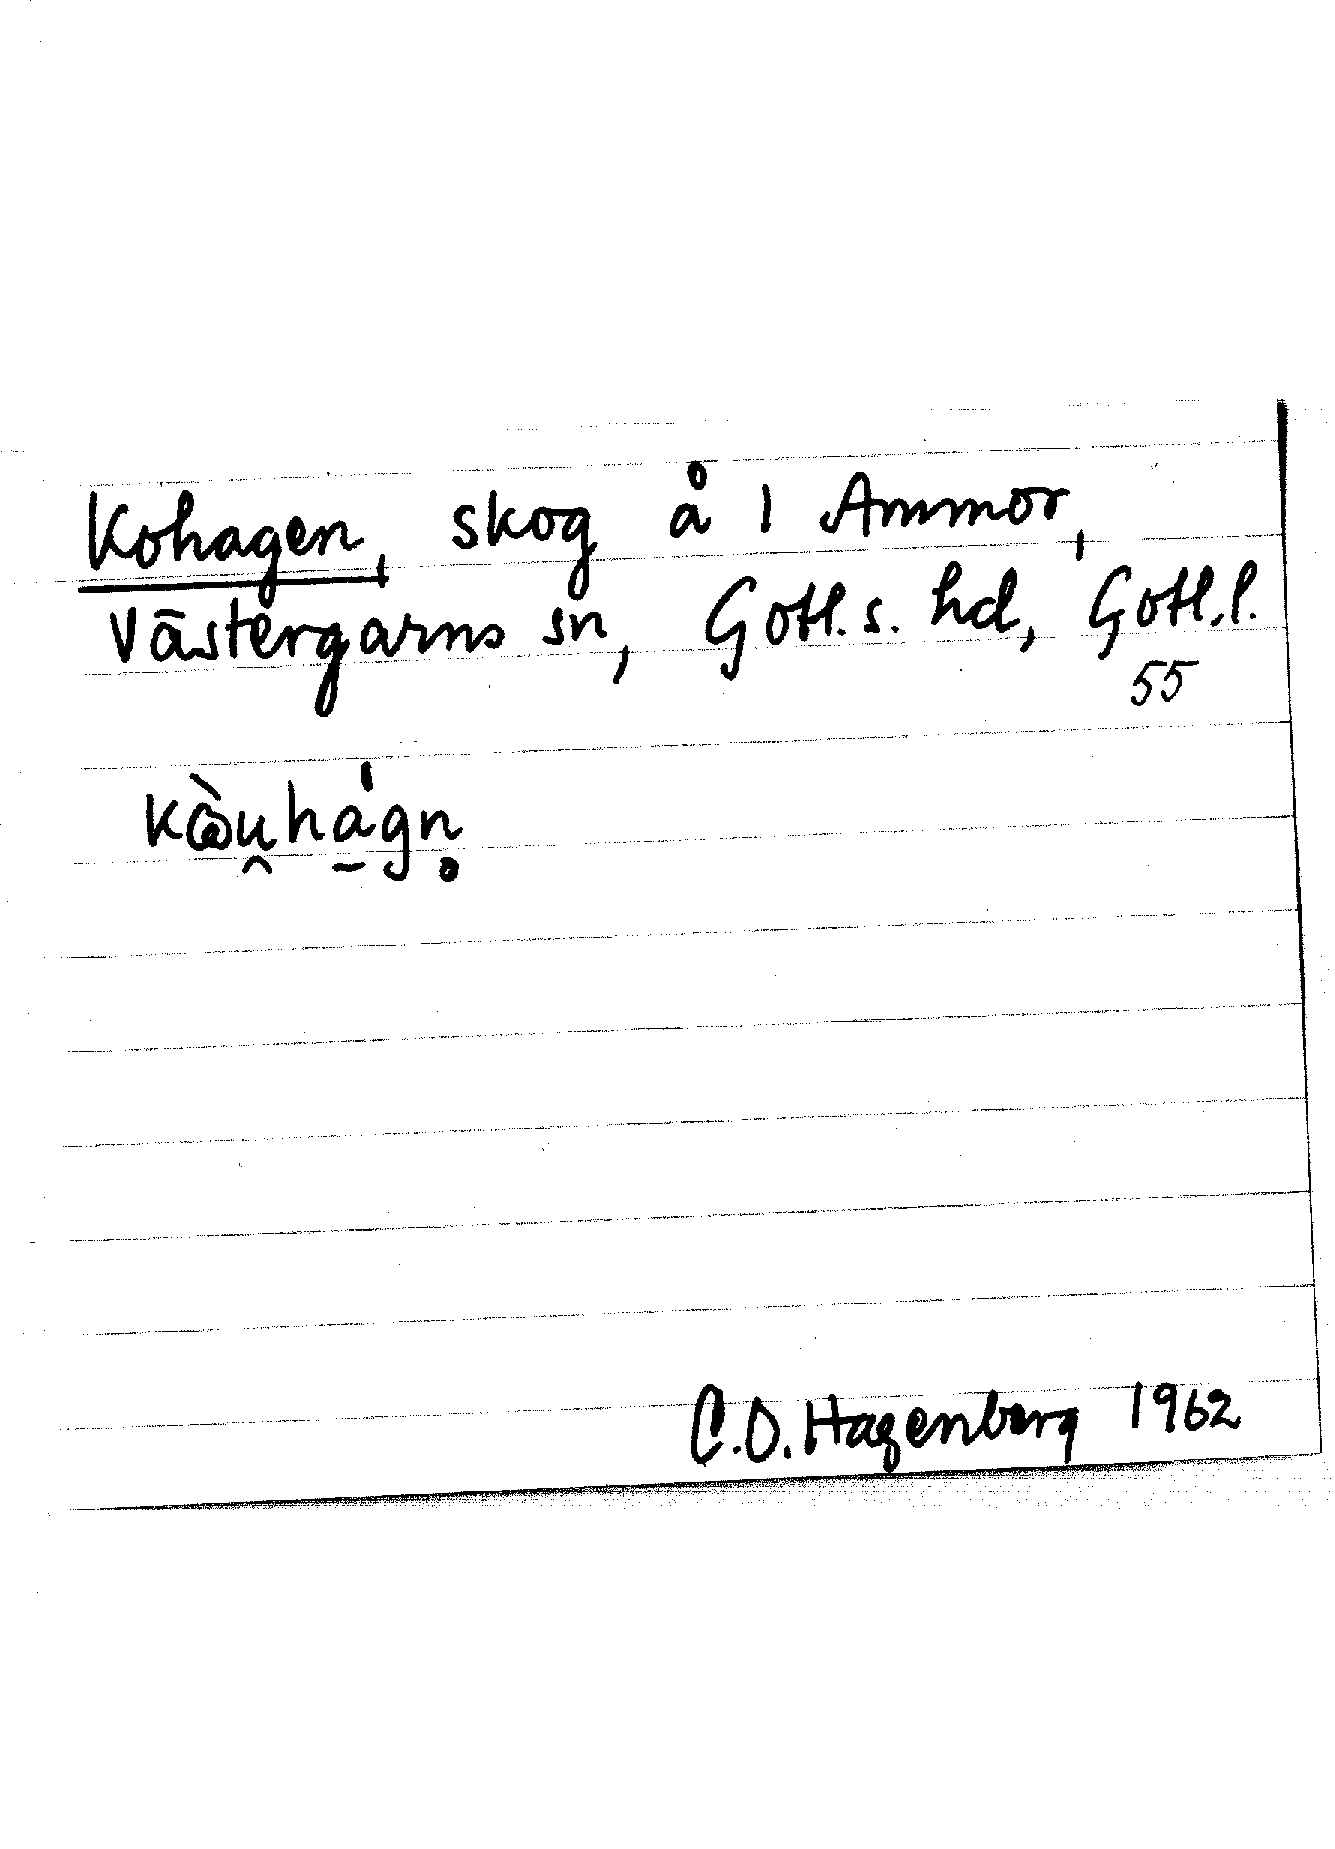 Kohagen, skog å 1 Ammor,
Västergarns sn, Gotl. s. hd, Gotl. l.
55
kòu̯há̱gn̥
C.O. Hagenberg 1962